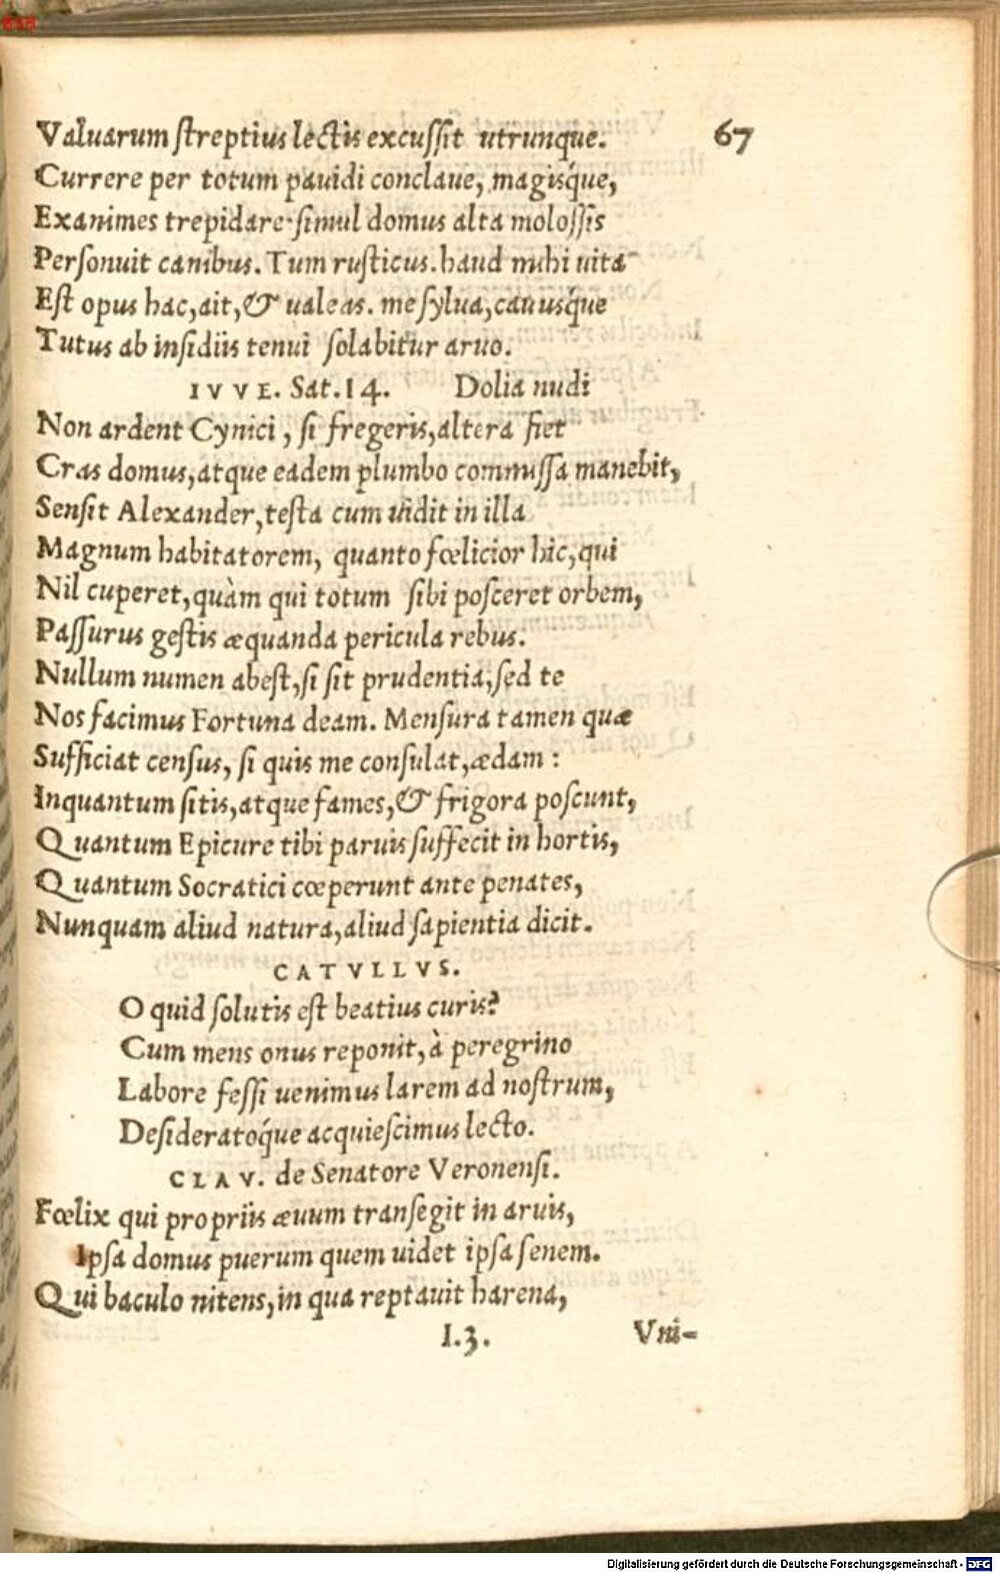 Valuarum ſtreptius lectis excuſſit utrunque. 67
Currere per totum pauidi conclaue, magisq́ue,
Exanimes trepidare·ſimul domus alta moloſſis
Perſonuit canibus. Tum ruſticus. haud mihi uita
Eſt opus hac, ait, & ualeas. me ſylua, cauusq́ue
Tutus ab inſidiis tenui ſolabitur aruo.
IVVE. Sat. 14. Dolia nudi
Non ardent Cynici, ſi fregeris, altera fiet
Cras domus, atque eadem plumbo commiſſa manebit,
Senſit Alexander, teſta cum uidit in illa
Magnum habitatorem, quanto fœlicior hic, qui
Nil cuperet, quàm qui totum ſibi poſceret orbem,
Paſſurus geſtis æquanda pericula rebus.
Nullum numen abeſt, ſi ſit prudentia, ſed te
Nos facimus Fortuna deam. Menſura tamen quæ
Sufficiat cenſus, ſi quis me conſulat, ædam:
Inquantum ſitis, atque fames, & frigora poſcunt,
Quantum Epicure tibi paruis ſuffecit in hortis,
Quantum Socratici cœperunt ante penates,
Nunquam aliud natura, aliud ſapientia dicit.
CATVLLVS.
O quid ſolutis eſt beatius curis?
Cum mens onus reponit, à peregrino
Labore feſſi uenimus larem ad noſtrum,
Deſideratoq́ue acquieſcimus lecto.
CLAV. de Senatore Veronenſi.
Fœlix qui propriis æuum tranſegit in aruis,
Ipſa domus puerum quem uidet ipſa ſenem.
Qui baculo nitens, in qua reptauit harena,
I.3. Vni-
Digitalisierung gefördert durch die Deutsche Forschungsgemeinschaft - DFG